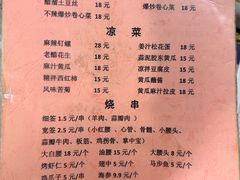 醋熘土豆丝 18元 爆炒卷心菜 18元
不辣爆炒卷心菜 18元
凉菜
麻辣钉螺 28元 姜汁松花蛋 18元
老醋花生 18元 蒜泥胶东黄瓜 15元
麻汁黄瓜 18元 凉拌豆腐皮 15元
糖拌西红柿 15元 黄瓜蘸酱 15元
风味苦菊 15元 黄瓜麻汁拉皮 18元
烧串
细签 1.5元/串（羊肉、蒜瓣肉）
宽签 2.5元/串（小红腰、心管、骨髓、小腰头、
蒜瓣牛肉、板筋、鸡拐骨、掌中宝）
大白腰 18元/个 油腰 15元/个 大腰头 8元/个
烤虾仁 5元/个 翅中 5元/个 马步鱼 5元/个
鸡爪子 5元/个 海参 9.9元/个